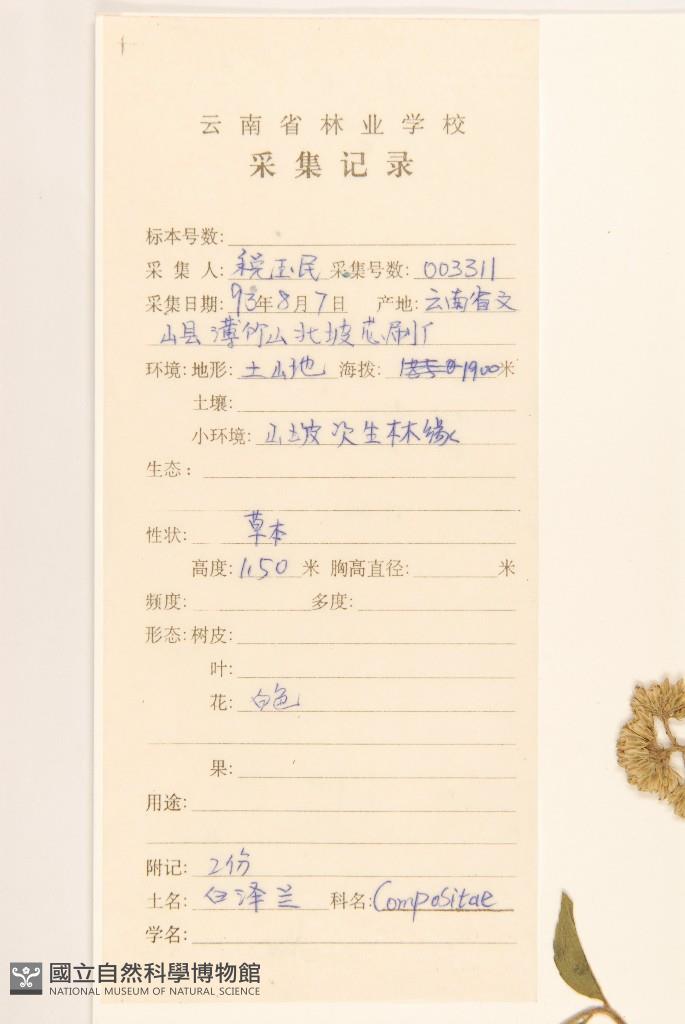 云南省林业学校
采集记录
标本号数:
采集人: 税玉民 采集号数: 003311
采集日期: 93年8月7日 产地: 云南省文
山县薄竹山北坡芯刷厂
环境: 地形: 土山地 海拨: 1900米
土壤:
小环境: 山坡次生林缘
生态:
性状: 草本
高度: 1.50 米 胸高直径: 米
频度: 多度:
形态: 树皮:
叶:
花: 白色
果:
用途:
附记: 2份
土名: 白泽兰 科名: Compositae
学名:
國立自然科學博物館
NATIONAL MUSEUM OF NATURAL SCIENCE